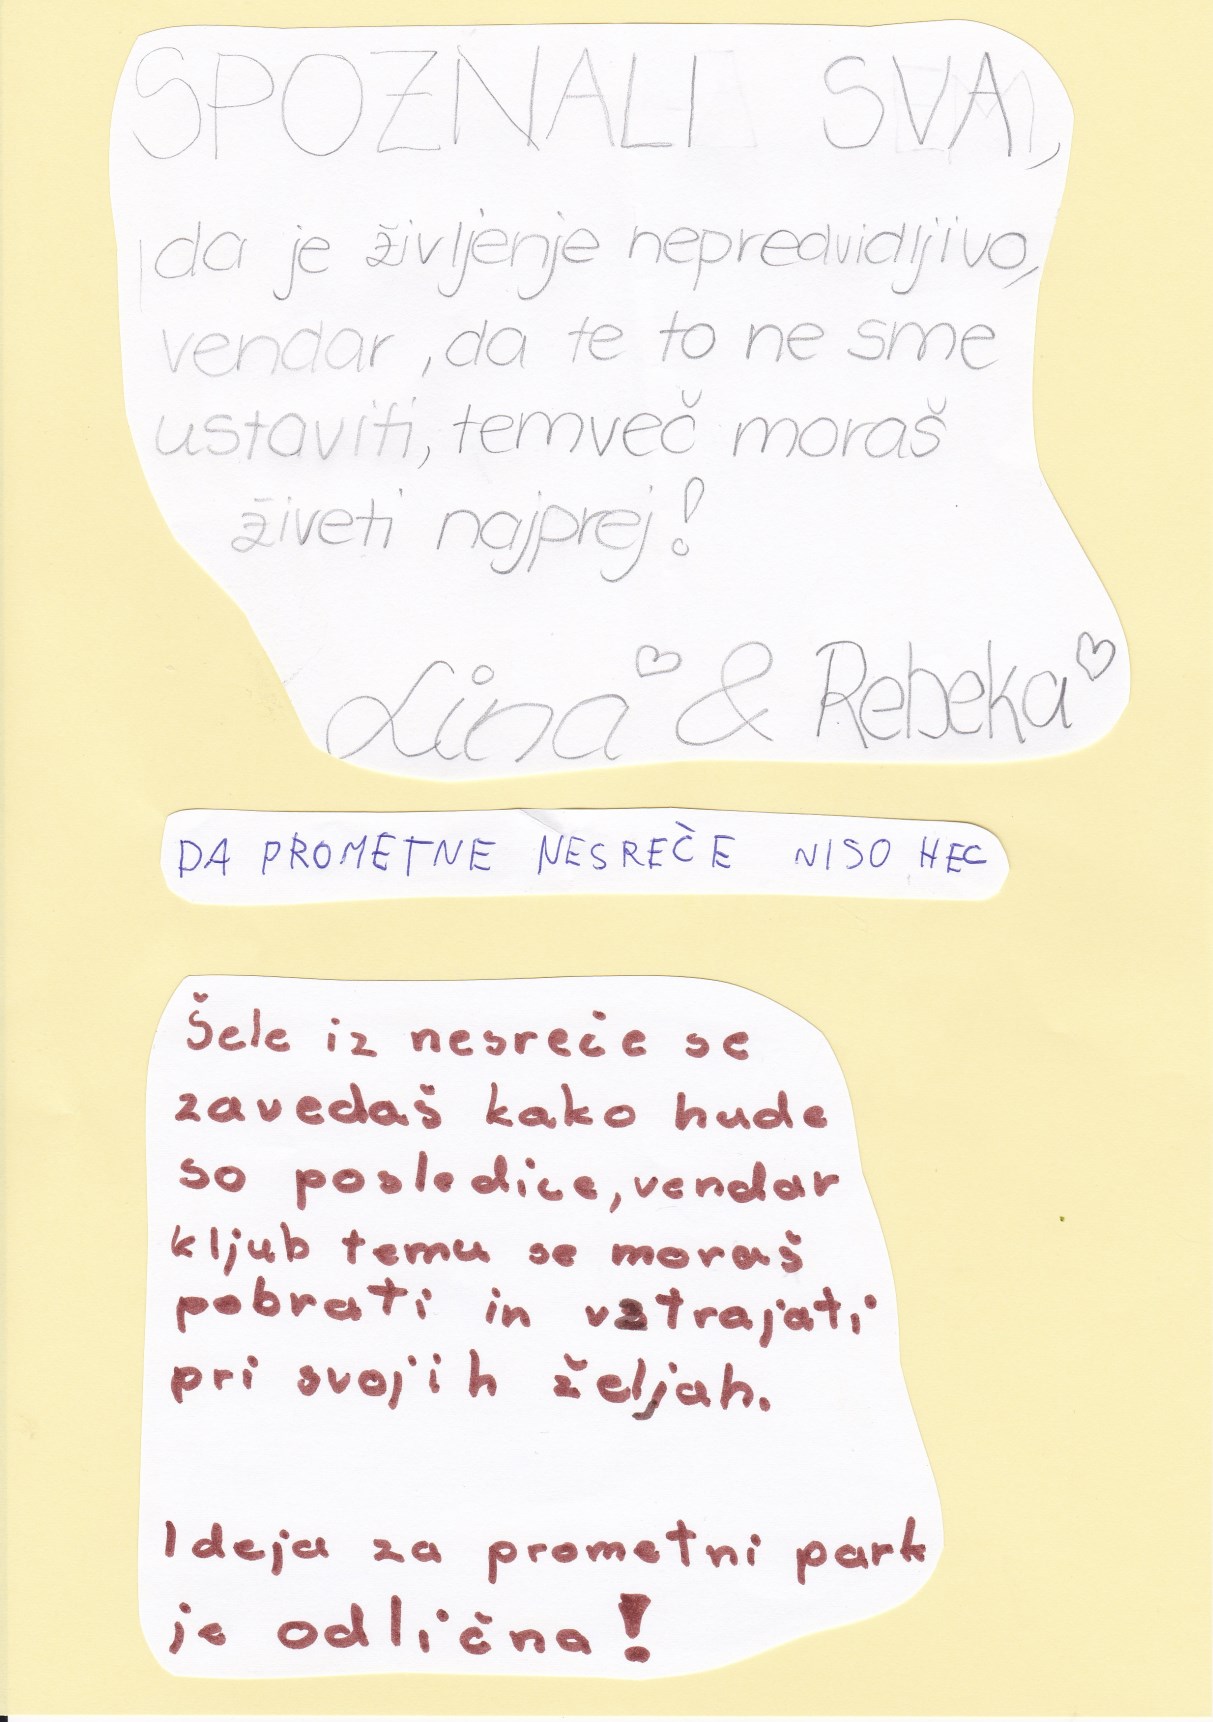 SPOZNALI SVA,
da je življenje nepredvidljivo,
vendar, da te to ne sme
ustaviti, temveč moraš
živeti najprej!
Lina & Rebeka
DA PROMETNE NESREČE NISO HEC
Šele iz nesreče se
zavedaš kako hude
so posledice, vendar
kljub temu se moraš
pobrati in vztrajati
pri svojih željah.
Ideja za prometni park
je odlična!